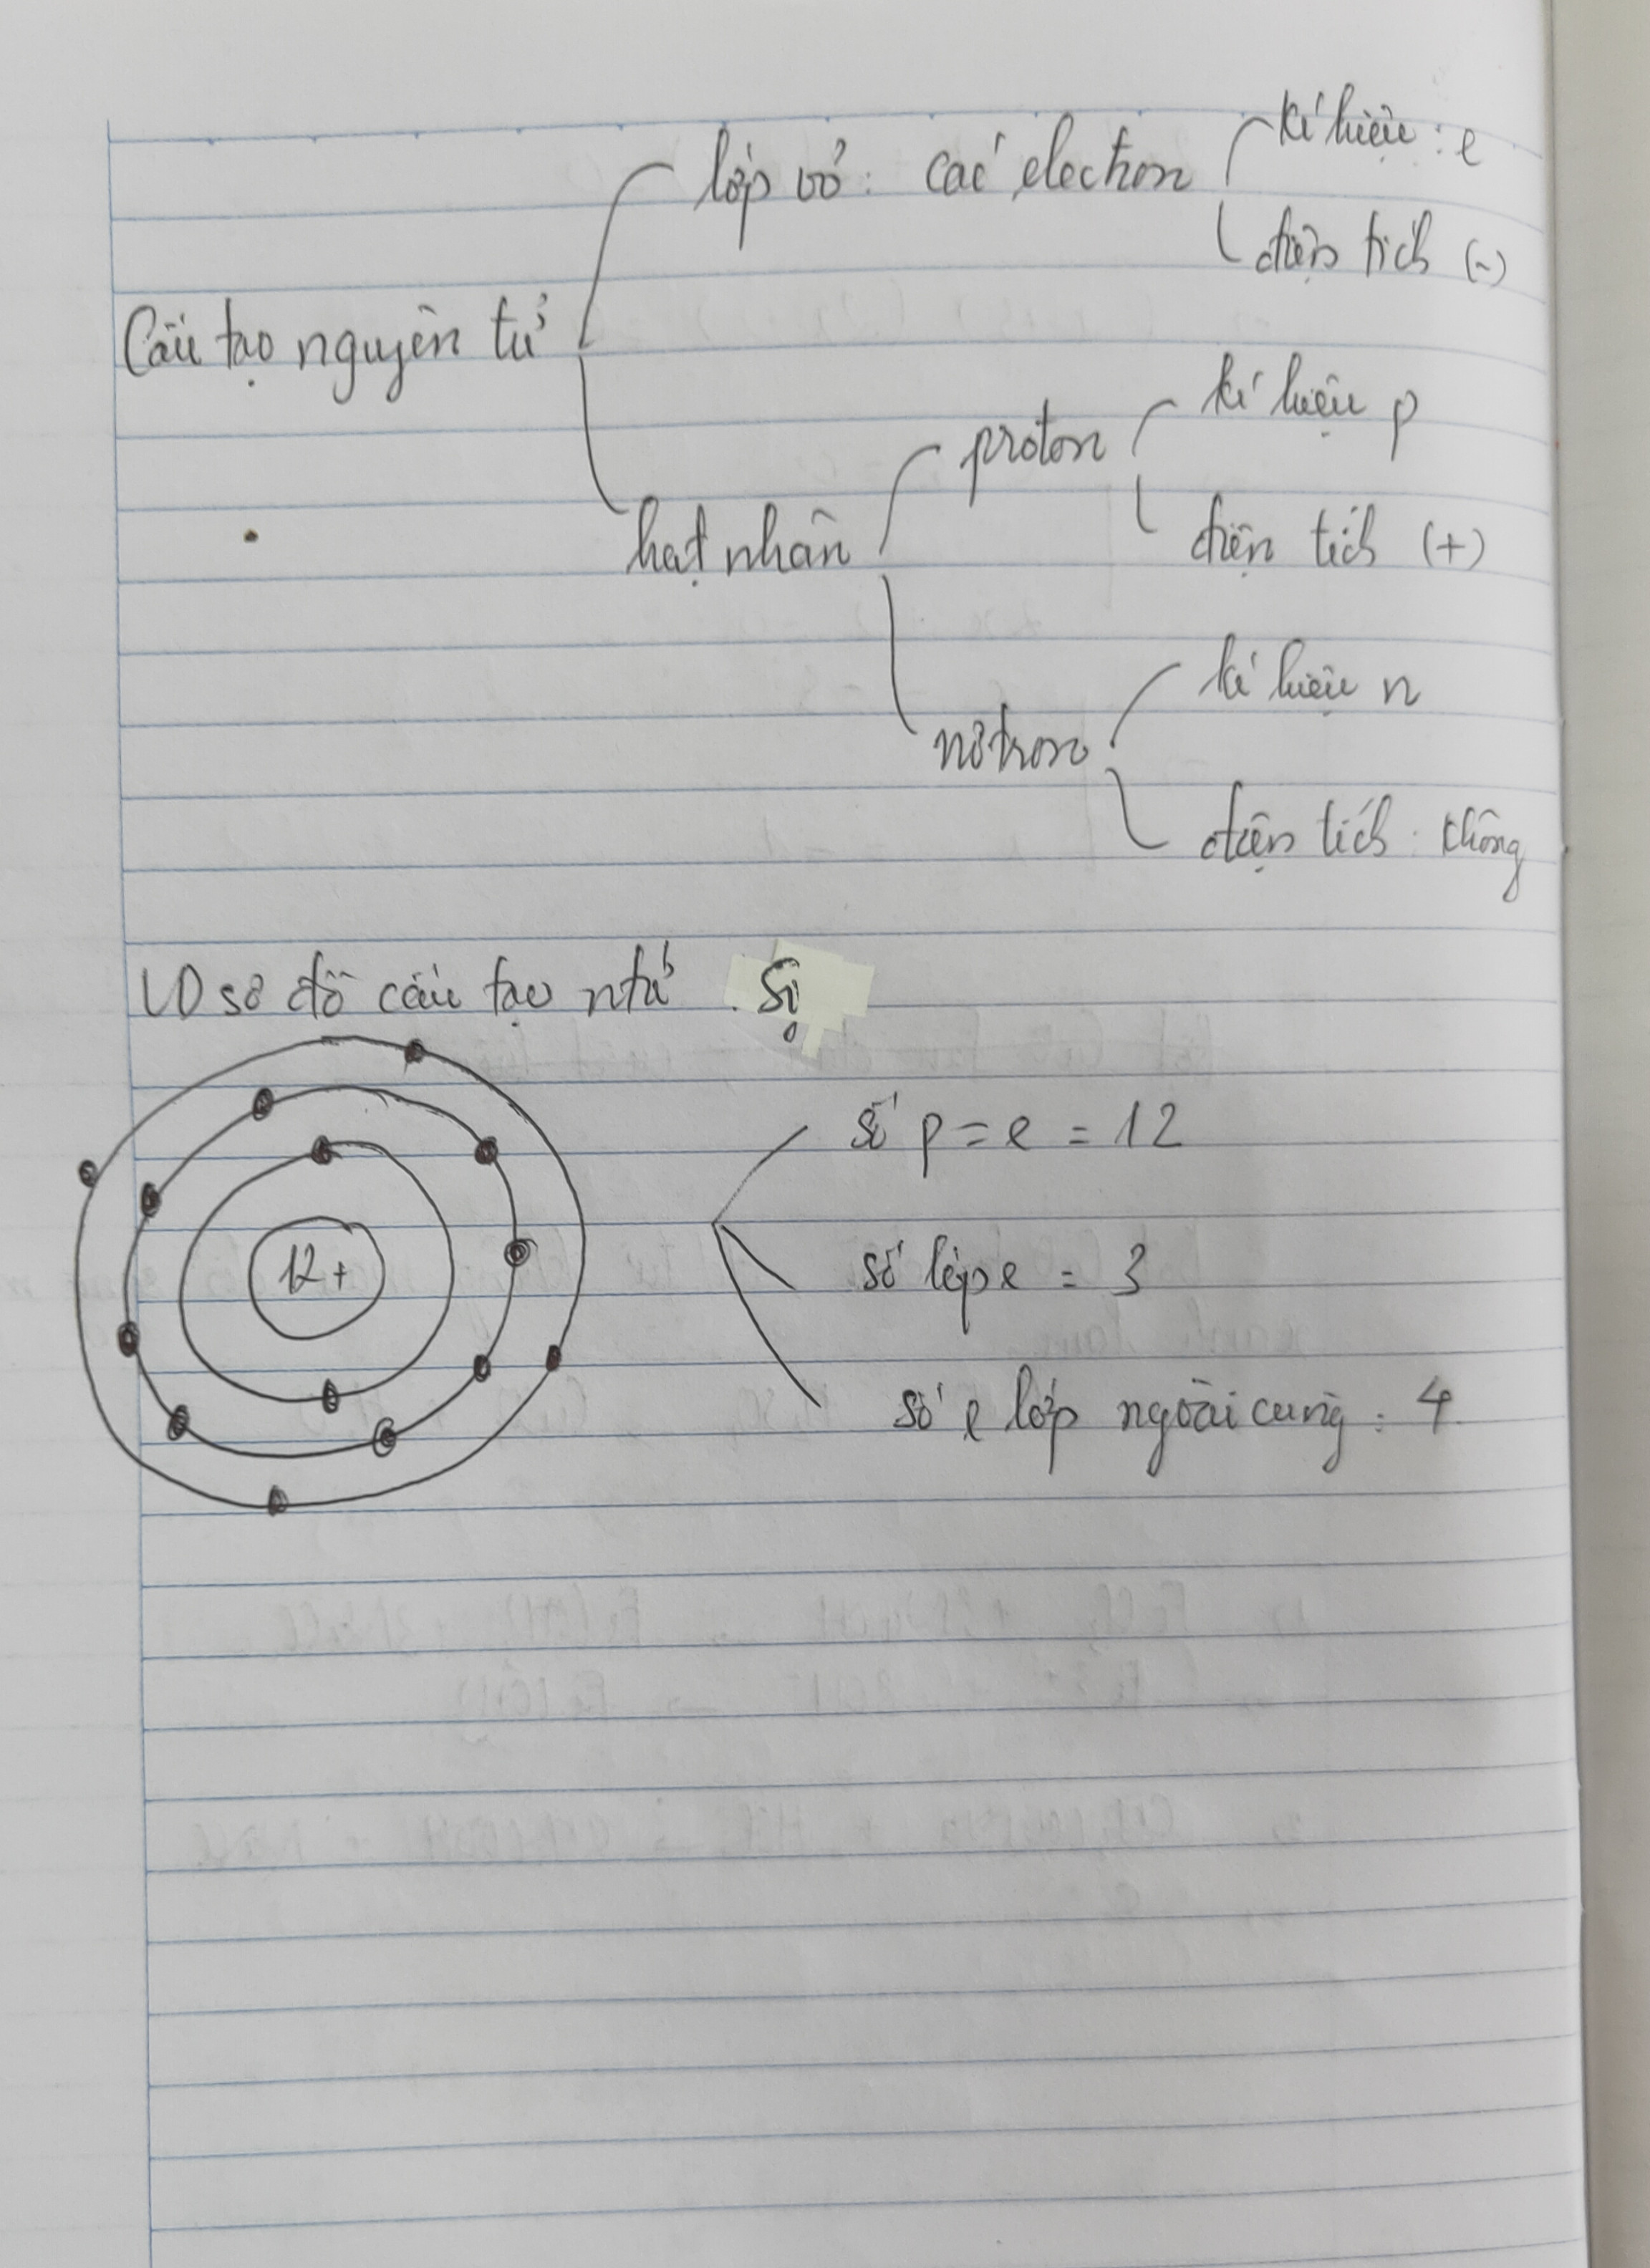 kí hiệu : e
lớp vỏ : các electron
điện tích (-)
Cấu tạo nguyên tử
kí hiệu p
proton
điện tích (+)
hạt nhân
kí hiệu n
nơtron
điện tích : không
VD sơ đồ cấu tạo ntử Si
số p = e = 12
12+
số lớp e = 3
số e lớp ngoài cùng : 4